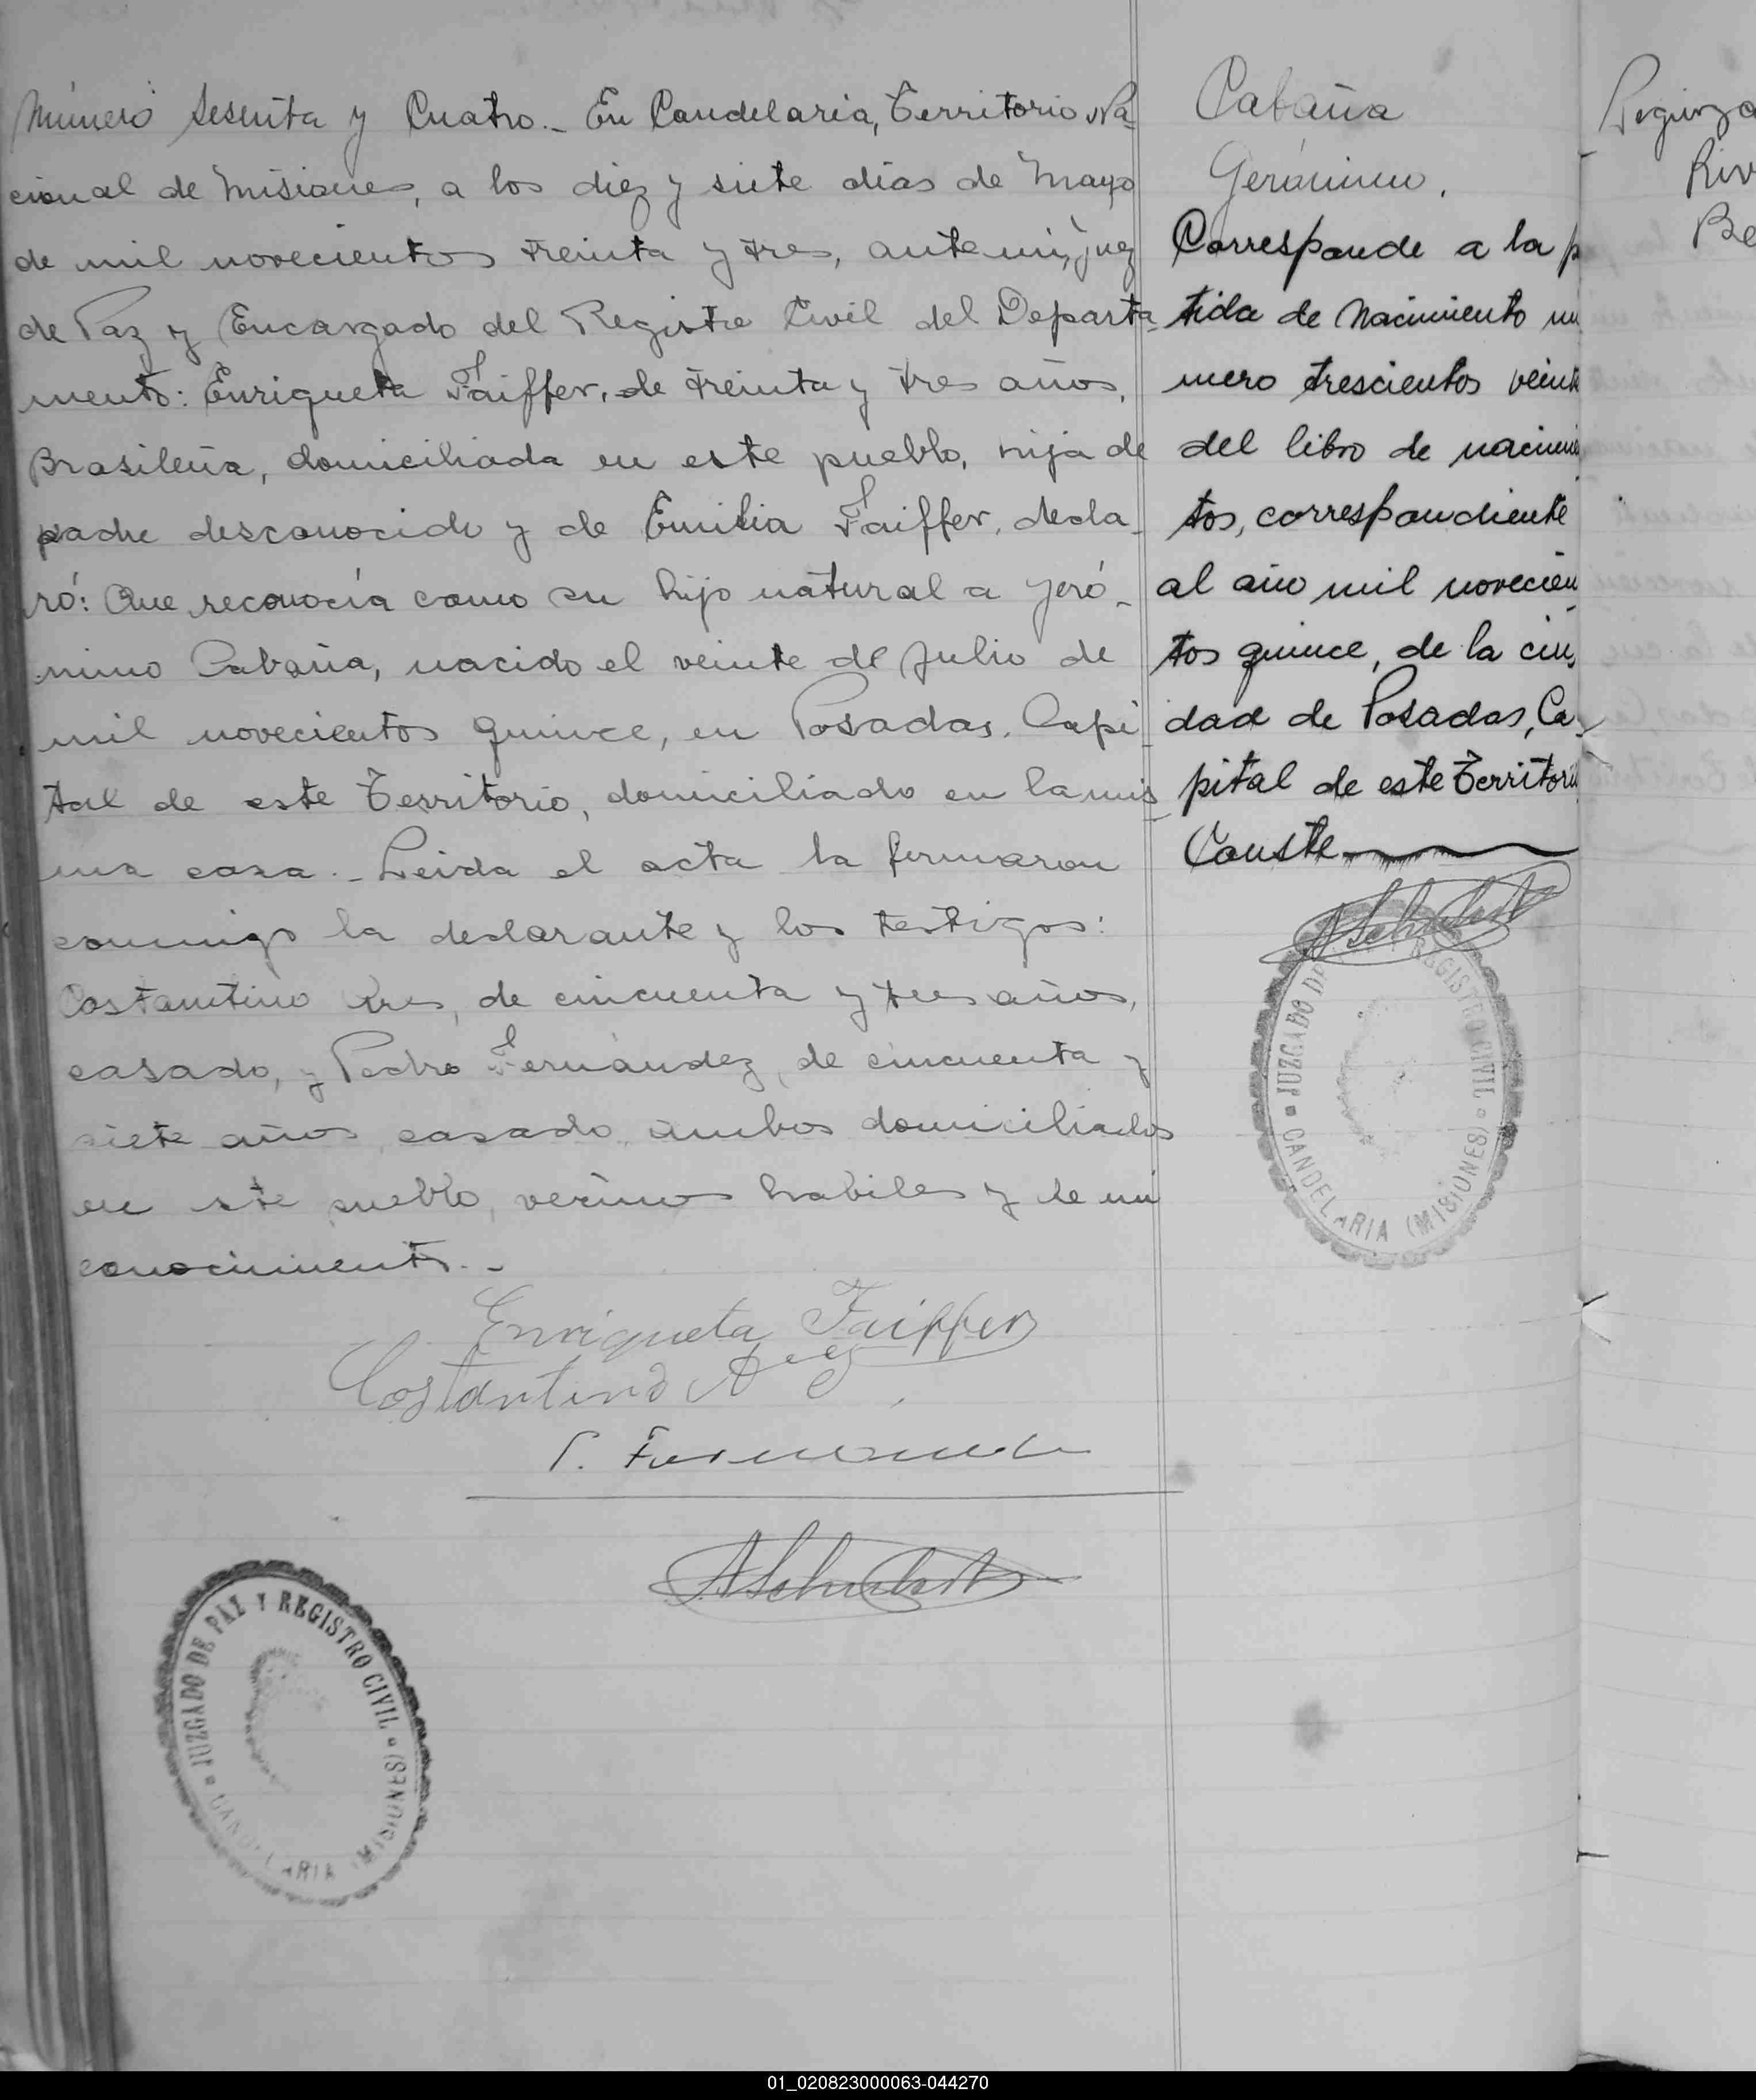 Número Sesenta y Cuatro._ En Candelaria, Territorio Na_
cional de Misiones, a los diez y siete días de Mayo
de mil novecientos treinta y tres, ante mí, Juez
de Paz y Encargado del Registro Civil del Departa_
mento: Enriqueta Faiffer, de treinta y tres años,
Brasileña, domiciliada en este pueblo, hija de
padre desconocido y de Emilia Faiffer, decla_
ró: Que reconocía como su hijo natural a Jeró_
nimo Cabaña, nacido el veinte de Julio de
mil novecientos quince, en Posadas, Capi_
tal de este Territorio, domiciliado en la mis_
ma casa._ Leida el acta la firmaron
conmigo la declarante y los testigos:
Costantino, de cincuenta y tres años,
casado, y Pedro Fernández, de cincuenta y
siete años, casado, ambos domiciliados
en este pueblo, vecinos habiles y de mi
conocimiento._
Enriqueta Faiffer
Costantino
P. Fernandez
JUZGADO DE PAZ Y REGISTRO CIVIL
CANDELARIA (MISIONES)
Cabaña
Gerónimo.
Corresponde a la p
tida de Nacimiento nu
mero trescientos veinte
del libro de nacimie
tos, correspondiente
al año mil novecien_
tos quince, de la ciu_
dad de Posadas, Ca_
pital de este Territorio
Conste
JUZGADO DE REGISTRO CIVIL
CANDELARIA (MISIONES)
Riv
Be
01_020823000063-044270